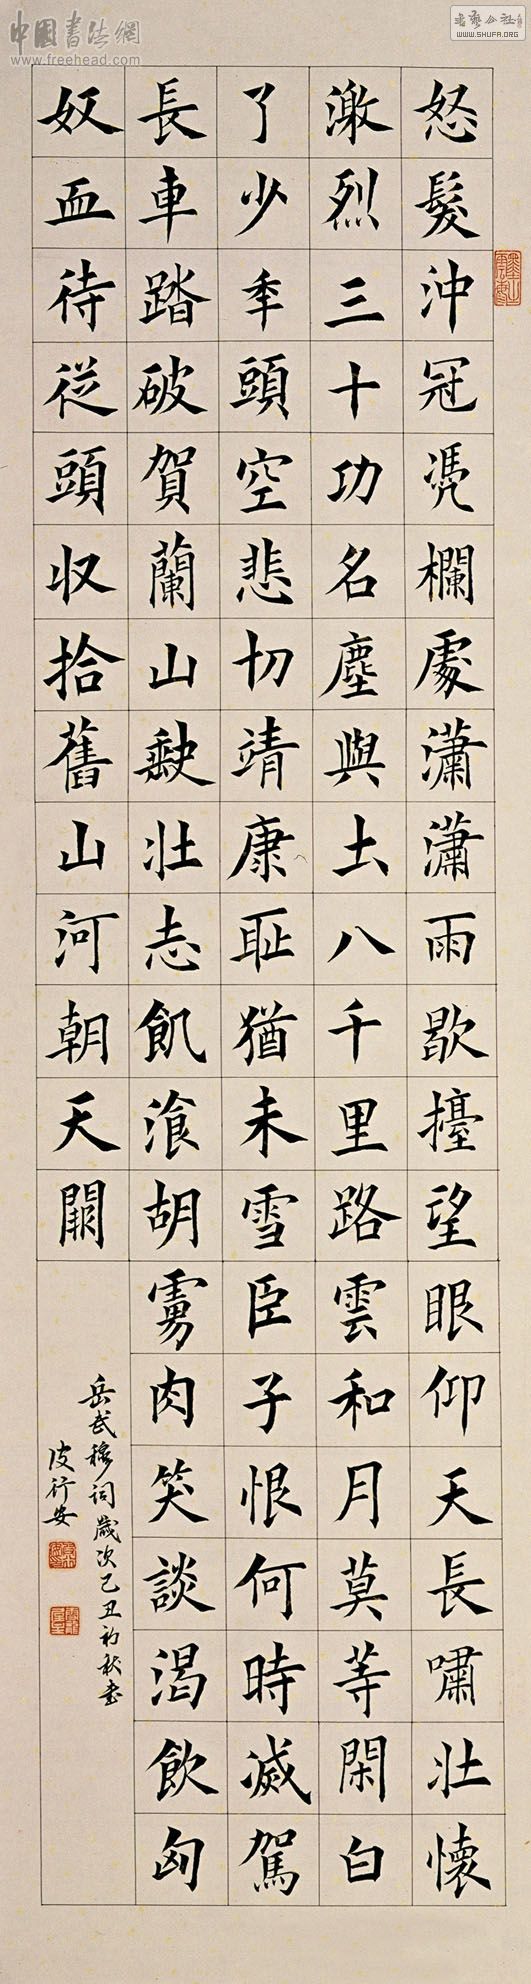 中國書法網
www.freehead.com
書藝公社
www.SHUFA.ORG
怒髮沖冠凴欄處瀟瀟雨歇擡望眼仰天長嘯壯懷
激烈三十功名塵與圡八千里路雲和月莫等閑白
了少秊頭空悲切靖康耻猶未雪臣子恨何時滅駕
長車踏破賀蘭山缺壯志飢湌胡虜肉笑談渴飲匈
奴血待從頭收拾舊山河朝天闕
岳武穆詞歲次己丑初秋書
皮行安